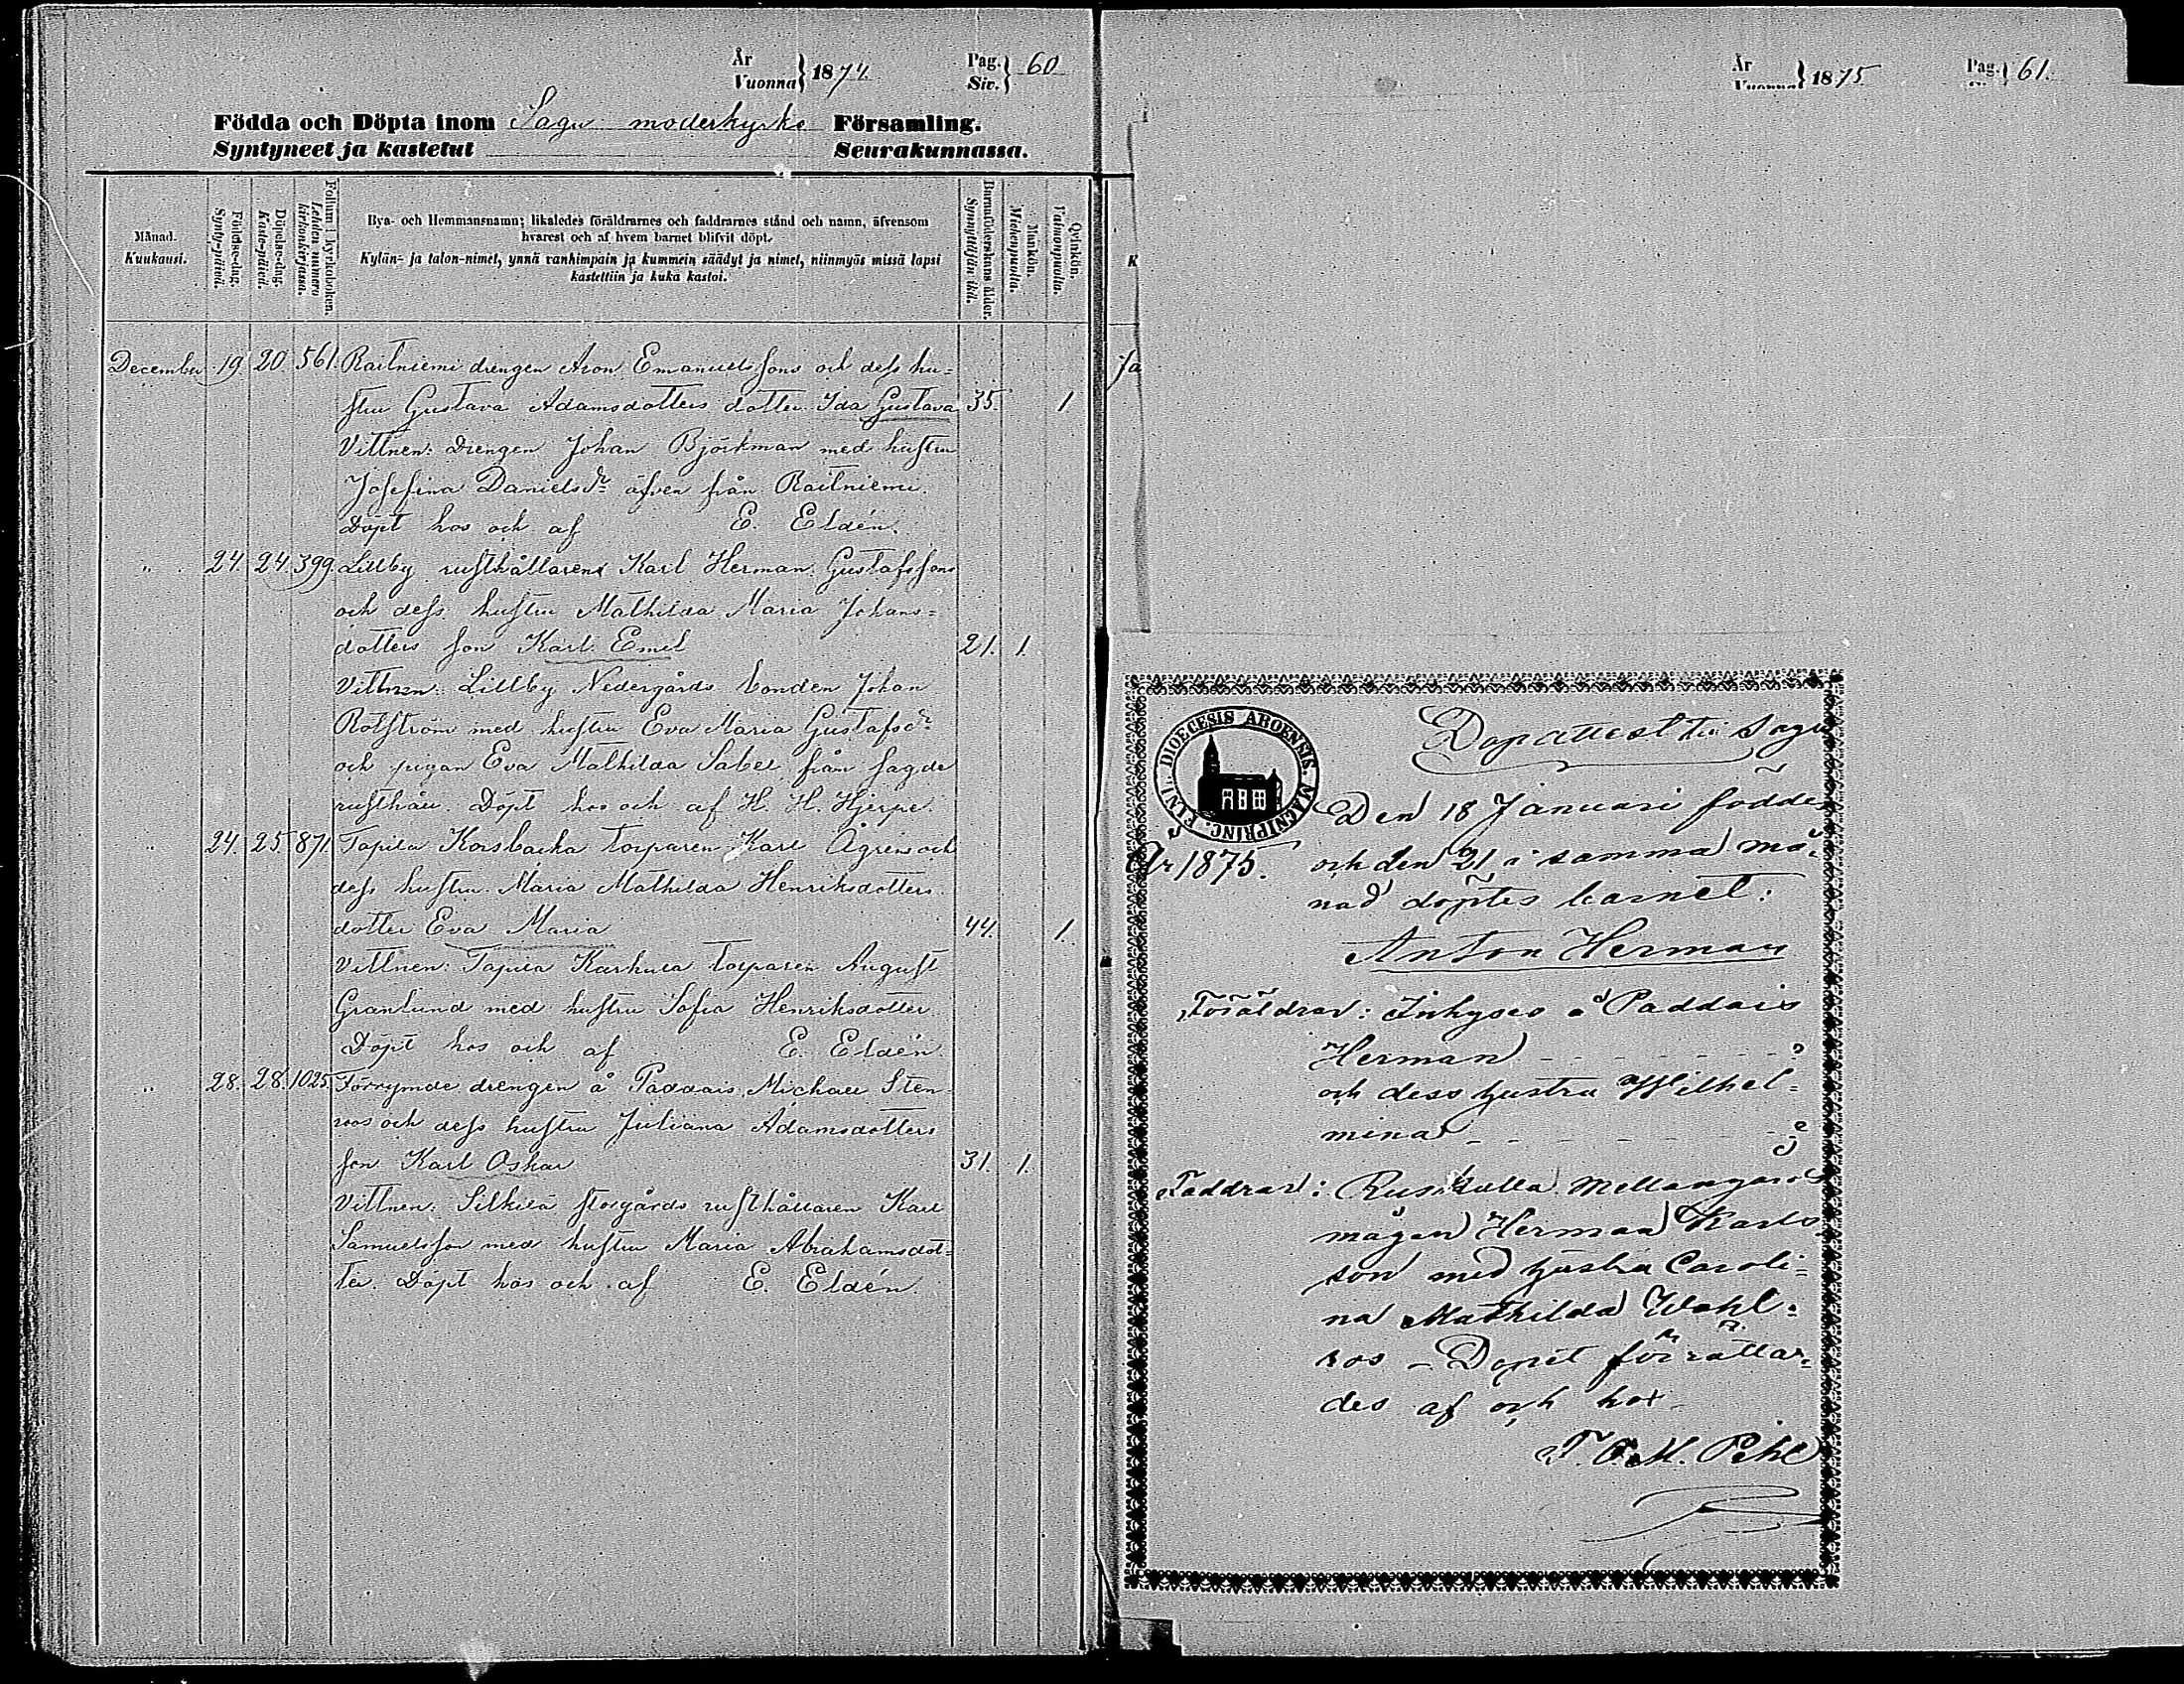 År
Vuonna } 1874.
Pag.
Siv. } 60
Födda och Döpta inom Sagu moderkyrko Församling.
Syntyneet ja kastetut Seurakunnassa.
Månad.
Kuukausi.
Födelse-dag.
Synty-päivä.
Döpelse-dag.
Kaste-päivä.
Folium i kyrkoboken.
Lehden numero
kirkonkirjassa.
Bya- och Hemmansnamn; likaledes föräldrarnes och faddrarnes stånd och namn, äfvensom
hvarest och af hvem barnet blifvit döpt.
Kylän- ja talon-nimet, ynnä vanhimpain ja kummein säädyt ja nimet, niinmyös missä lapsi
kastettiin ja kuka kastoi.
Barnaföderskans ålder.
Synnyttäjän ikä.
Mankön.
Miehenpuolia.
Qvinkön.
Vaimonpuolia.
December 19 20 561 Raitniemi drengen Aron Emanuelssons och dess hu=
stru Gustava Adamsdotters dotter Ida Gustava 35. 1
Vittnen: Drengen Johan Björkman med hustru
Josefina Danielsdr äfven från Raitniemi.
Döpt hos och af E. Eldén.
" 24 24 399 Lillby rusthållarens Karl Herman Gustafssons
och dess hustru Mathilda Maria Johans=
dotters son Karl Emil 21. 1.
Vittnen: Lillby Nedergårds bonden Johan
Rotström med hustru Eva Maria Gustafsdr
och pigan Eva Mathilda Sabel från sagde
rusthåll. Döpt hos och af H. H. Hjerpe.
" 24. 25 871 Tapila Korsbacka torparen Karl Ågrens och
dess hustru Maria Mathilda Henriksdotters
dotter Eva Maria 44. 1.
Vittnen: Tapila Karhula torparen August
Granlund med hustru Sofia Henriksdotter.
Döpt hos och af E. Eldén.
" 28. 28. 1025. Förrymde drengen å Paddais, Michael Sten-
roos och dess hustru Juliana Adamsdotters
son Karl Oskar 31. 1.
Vittnen: Silkilä storgårds rusthållaren Karl
Samuelsson med hustru Maria Abrahamsdot=
ter. Döpt hos och af E. Eldén.
År
Vuonna } 1875
Pag. } 61.
K
Ja
DIOECESIS ABOENSIS. MAGNI PRINC. FLNI.
Dopattest till Sagu
Den 18 Januari föddes
År 1875. och den 21 i samma må=
nad döptes barnet:
Anton Herman
Föräldrar: Inhyses å Paddais
Herman - - - - - - - ?
och dess hustru Wilhel=
mina - - - - - - - ?
Faddrar: Rusikulla Mellangårds
mågen Herman Karls
son med hustru Caroli=
na Mathilda Wahl=
ros – Dopet förrättar=
des af och hos
F. O. M. Pihl